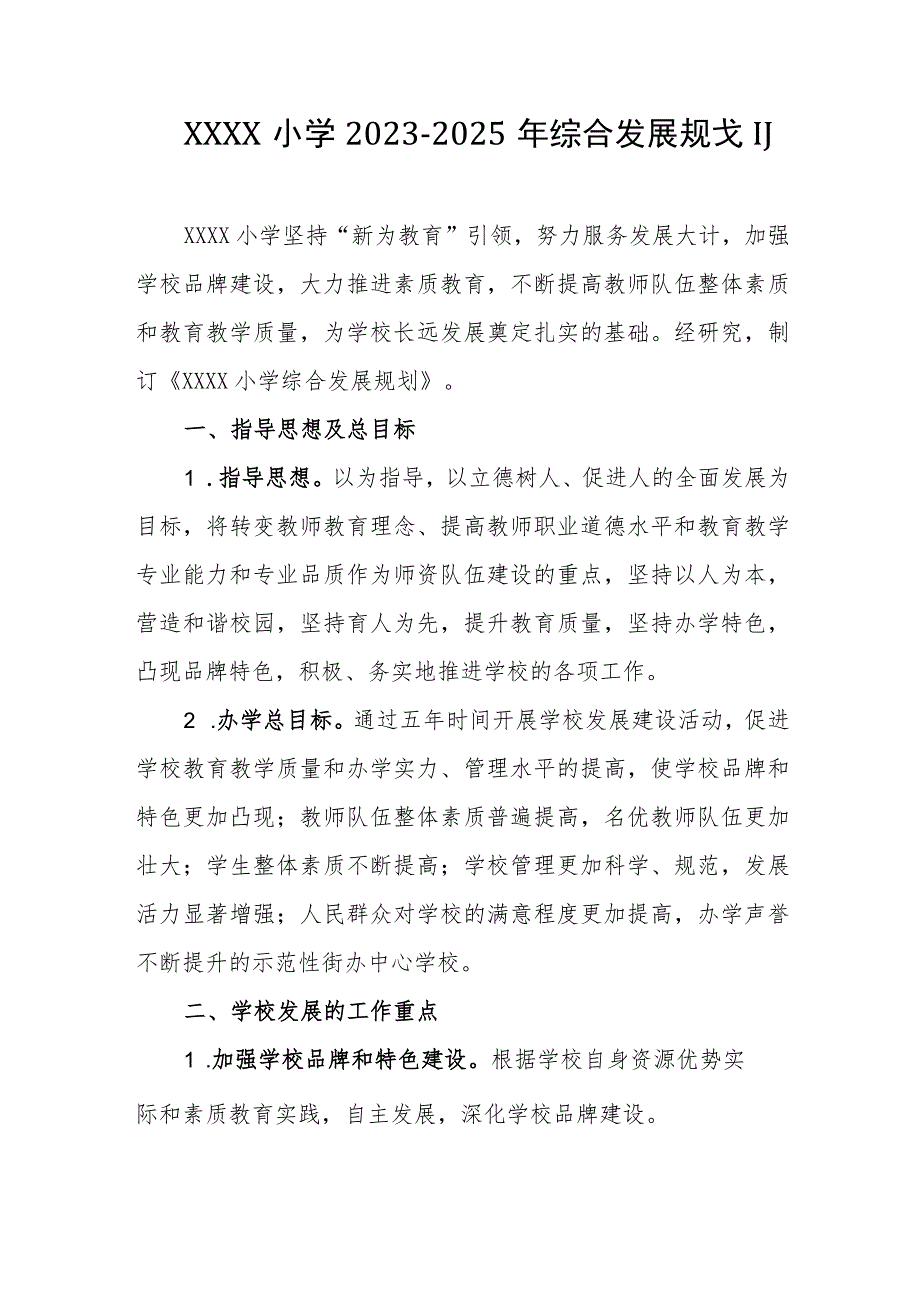 XXXX 小学 2023-2025 年综合发展规戈 IJ
XXXX 小学坚持“新为教育”引领，努力服务发展大计，加强
学校品牌建设，大力推进素质教育，不断提高教师队伍整体素质
和教育教学质量，为学校长远发展奠定扎实的基础。经研究，制
订《XXXX 小学综合发展规划》。
一、指导思想及总目标
1 .指导思想。以为指导，以立德树人、促进人的全面发展为
目标，将转变教师教育理念、提高教师职业道德水平和教育教学
专业能力和专业品质作为师资队伍建设的重点，坚持以人为本，
营造和谐校园，坚持育人为先，提升教育质量，坚持办学特色，
凸现品牌特色，积极、务实地推进学校的各项工作。
2 .办学总目标。通过五年时间开展学校发展建设活动，促进
学校教育教学质量和办学实力、管理水平的提高，使学校品牌和
特色更加凸现；教师队伍整体素质普遍提高，名优教师队伍更加
壮大；学生整体素质不断提高；学校管理更加科学、规范，发展
活力显著增强；人民群众对学校的满意程度更加提高，办学声誉
不断提升的示范性街办中心学校。
二、学校发展的工作重点
1 .加强学校品牌和特色建设。根据学校自身资源优势实
际和素质教育实践，自主发展，深化学校品牌建设。